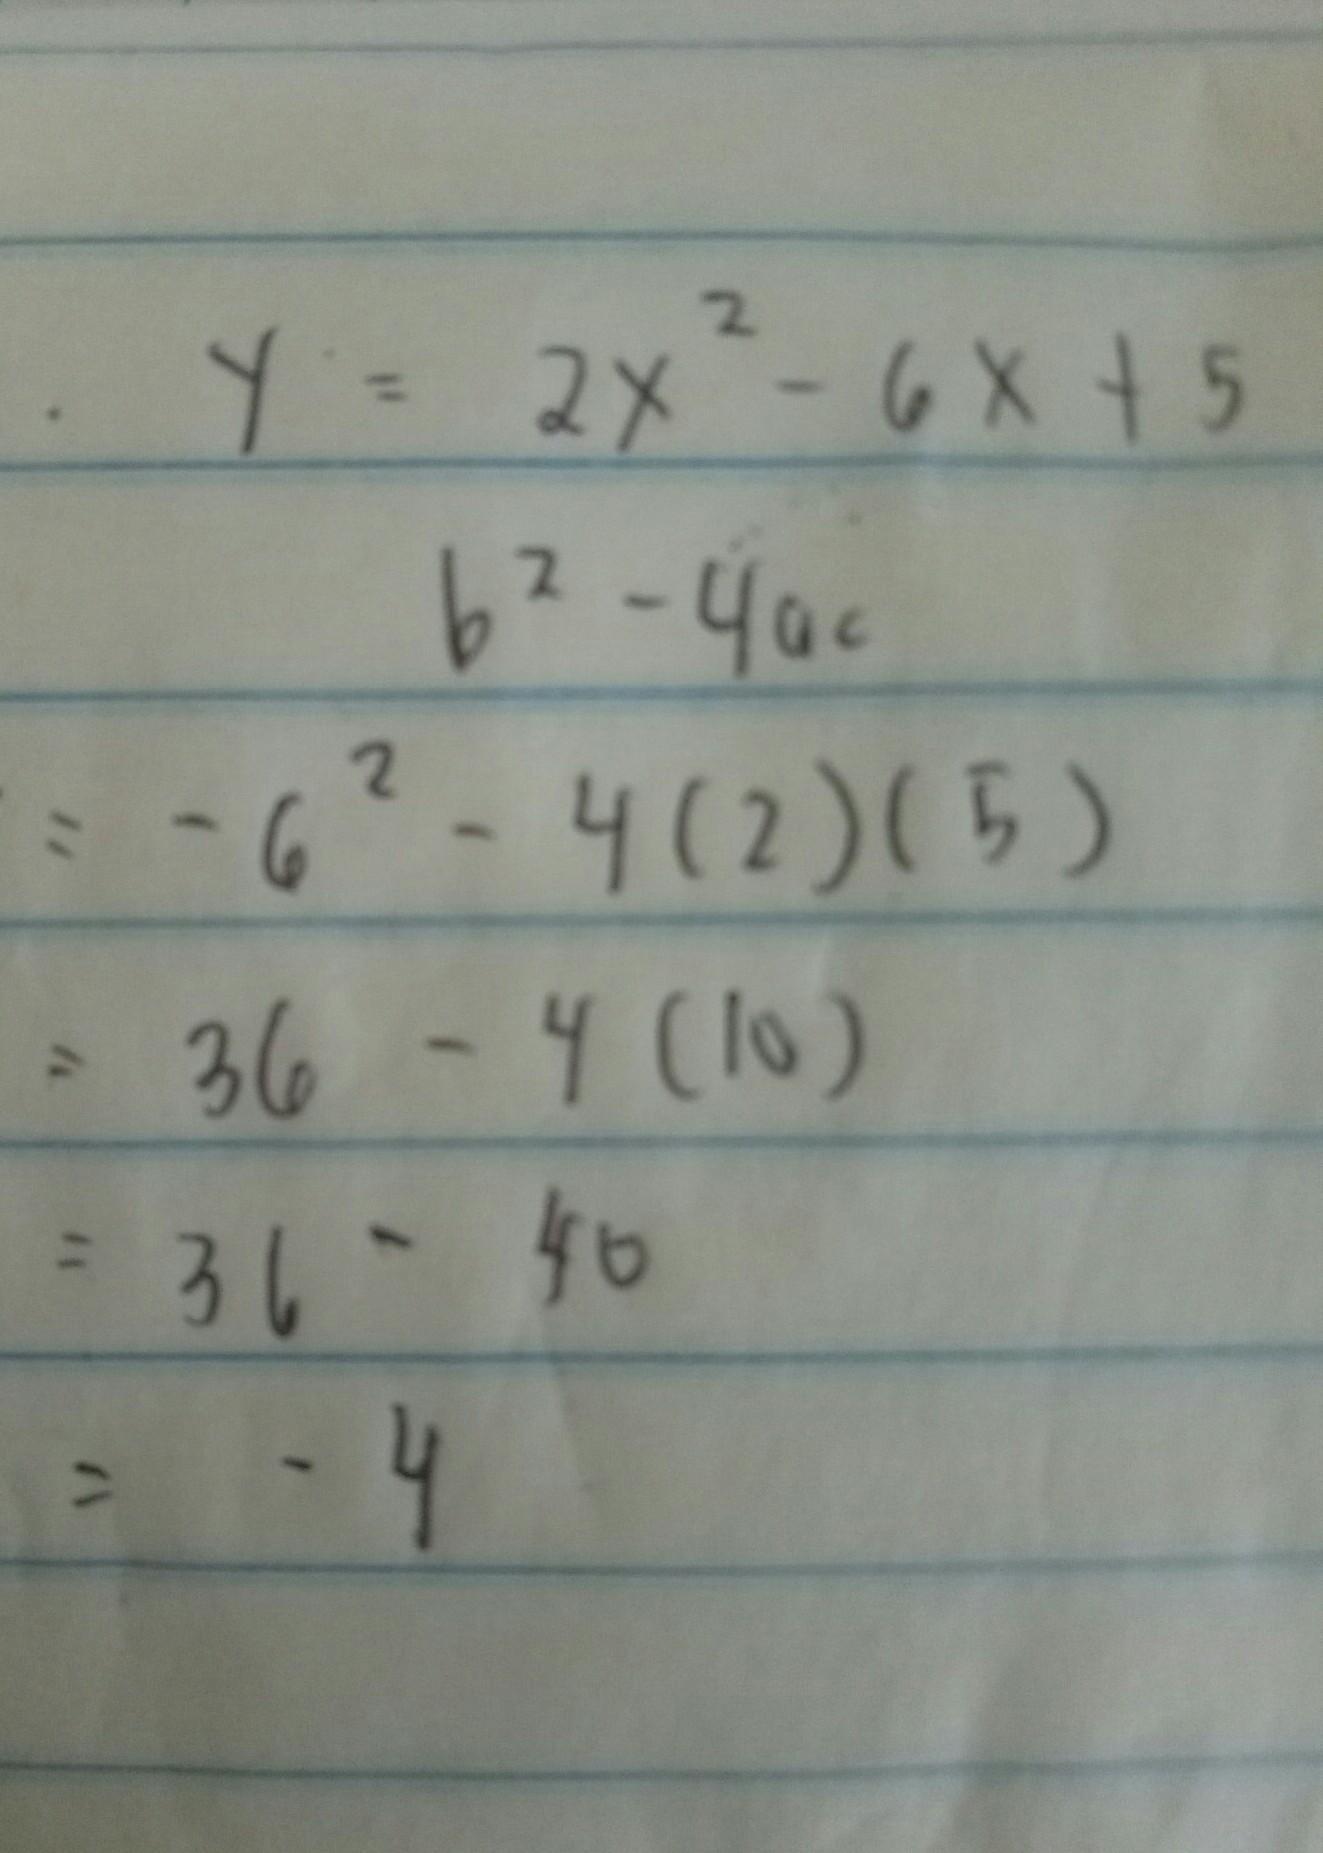 . Y = 2x² - 6x + 5
b² - 4ac
= - 6² - 4(2)(5)
= 36 - 4(10)
= 36 - 40
= - 4